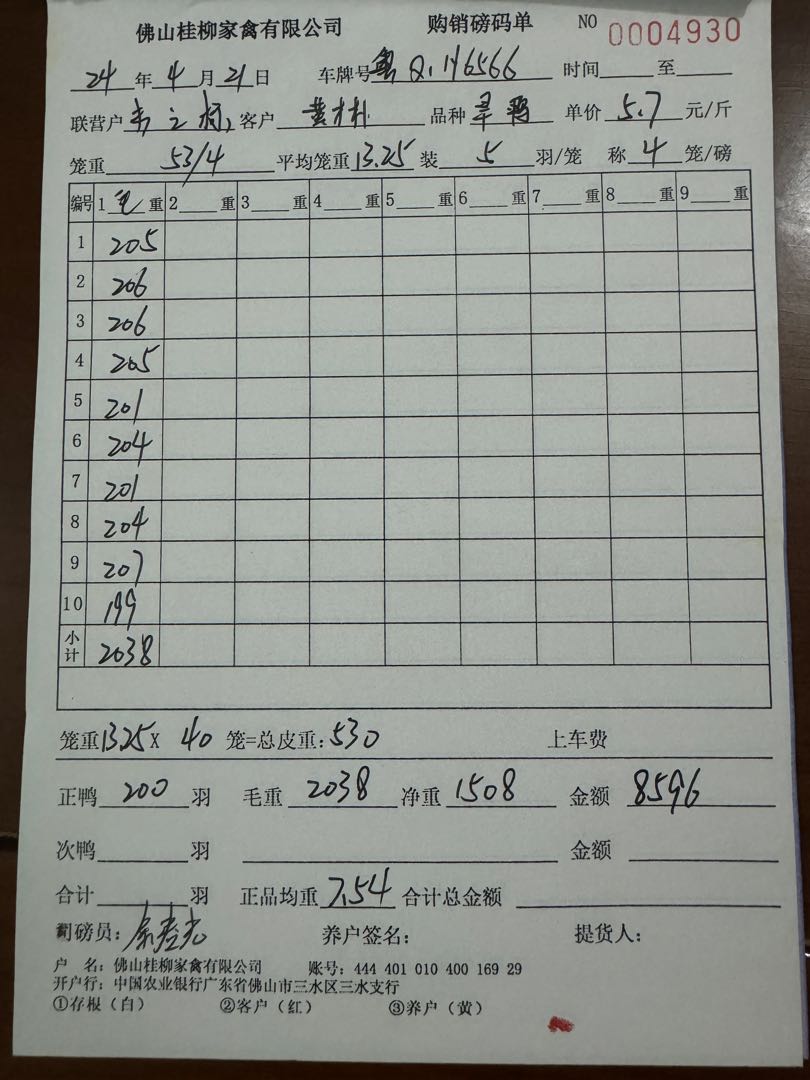 佛山桂柳家禽有限公司 购销磅码单 NO 0004930
24 年 4 月 21 日 车牌号 粤Q.146566 时间 至
联营户 客户 品种 单价 5.7 元/斤
笼重 53/4 平均笼重 13.25 装 5 羽/笼 称 4 笼/磅
编号 1 毛 重 2 重 3 重 4 重 5 重 6 重 7 重 8 重 9 重
1 205
2 206
3 206
4 205
5 201
6 204
7 201
8 204
9 207
10 199
小计 2038
笼重 13.25 X 40 笼=总皮重: 530 上车费
正鸭 200 羽 毛重 2038 净重 1508 金额 8596
次鸭 羽 金额
合计 羽 正品均重 7.54 合计总金额
司磅员: 养户签名: 提货人:
户 名: 佛山桂柳家禽有限公司 账号: 444 401 010 400 169 29
开户行: 中国农业银行广东省佛山市三水区三水支行
①存根（白） ②客户（红） ③养户（黄）